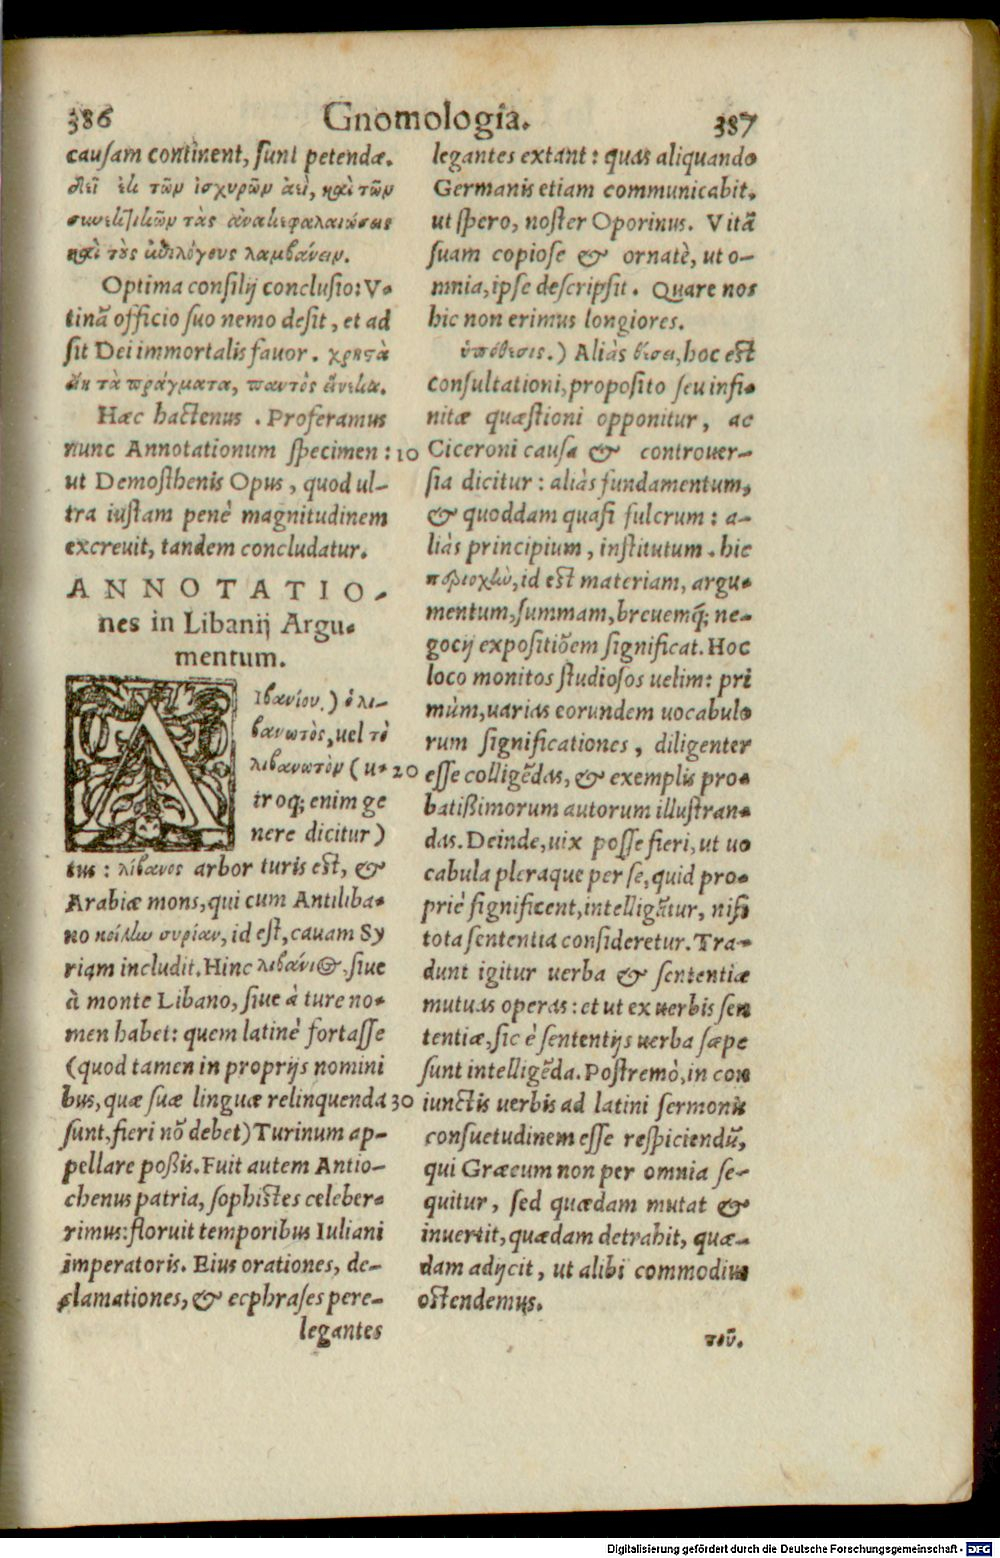 386
Gnomologia.
387
cauſam continent, ſunt petendæ.
δεῖ ἐκ τῶν ἰσχυρῶν ἀεὶ, καὶ τῶν
συνεκτικῶν τὰς ἀνακεφαλαιώσεις
καὶ τοὺς ἐπιλόγους λαμβάνειν.
Optima conſilij concluſio: V-
tinã officio ſuo nemo deſit, et ad
ſit Dei immortalis fauor. χρηστὰ
δὴ τὰ πράγματα, παντὸς ἕνεκα.
Hæc hactenus. Proferamus
nunc Annotationum ſpecimen:
10
ut Demoſthenis Opus, quod ul-
tra iuſtam penè magnitudinem
excreuit, tandem concludatur.
ANNOTATIO-
nes in Libanij Argu-
mentum.
Λιβανίου.) ὁ λι-
βανωτὸς, uel τὸ
λιβανωτὸν (u-
20
troq; enim ge
nere dicitur)
tus: λίβανος arbor turis eſt, &
Arabiæ mons, qui cum Antiliba-
no κοίλλω συρίαν, id eſt, cauam Sy
riam includit. Hinc λιβάνιος. ſiue
à monte Libano, ſiue à ture no-
men habet: quem latinè fortaſſe
(quod tamen in proprijs nomini
bus, quæ ſuæ linguæ relinquenda
30
ſunt, fieri nõ debet) Turinum ap-
pellare poßis. Fuit autem Antio-
chenus patria, ſophiſtes celeber-
rimus: floruit temporibus Iuliani
imperatoris. Eius orationes, de-
clamationes, & ecphraſes pere-
legantes
legantes extant: quas aliquando
Germanis etiam communicabit,
ut ſpero, noſter Oporinus. Vitã
ſuam copioſe & ornatè, ut o-
mnia, ipſe deſcripſit. Quare nos
hic non erimus longiores.
ὑπόθεσις.) Aliàs θέσει, hoc eſt
conſultationi, propoſito ſeu infi-
nitæ quæſtioni opponitur, ac
Ciceroni cauſa & controuer-
ſia dicitur: aliàs fundamentum,
& quoddam quaſi fulcrum: a-
liàs principium, inſtitutum. hic
περιοχὼ, id eſt materiam, argu-
mentum, ſummam, breuemq́; ne-
gocij expoſitiõem ſignificat. Hoc
loco monitos ſtudioſos uelim: pri
mùm, uarias eorundem uocabulo
rum ſignificationes, diligenter
eſſe colligẽdas, & exemplis pro-
batißimorum autorum illuſtran-
das. Deinde, uix poſſe fieri, ut uo
cabula pleraque per ſe, quid pro-
priè ſignificent, intelligãtur, niſi
tota ſententia conſideretur. Tra-
dunt igitur uerba & ſententiæ
mutuas operas: et ut ex uerbis ſen
tentiæ, ſic è ſententijs uerba ſæpe
ſunt intelligẽda. Poſtremò, in con
iunctis uerbis ad latini ſermonis
conſuetudinem eſſe reſpiciendũ,
qui Græcum non per omnia ſe-
quitur, ſed quædam mutat &
inuertit, quædam detrahit, quæ-
dam adijcit, ut alibi commodius
oſtendemus.
τοῦ.
Digitalisierung gefördert durch die Deutsche Forschungsgemeinschaft - DFG